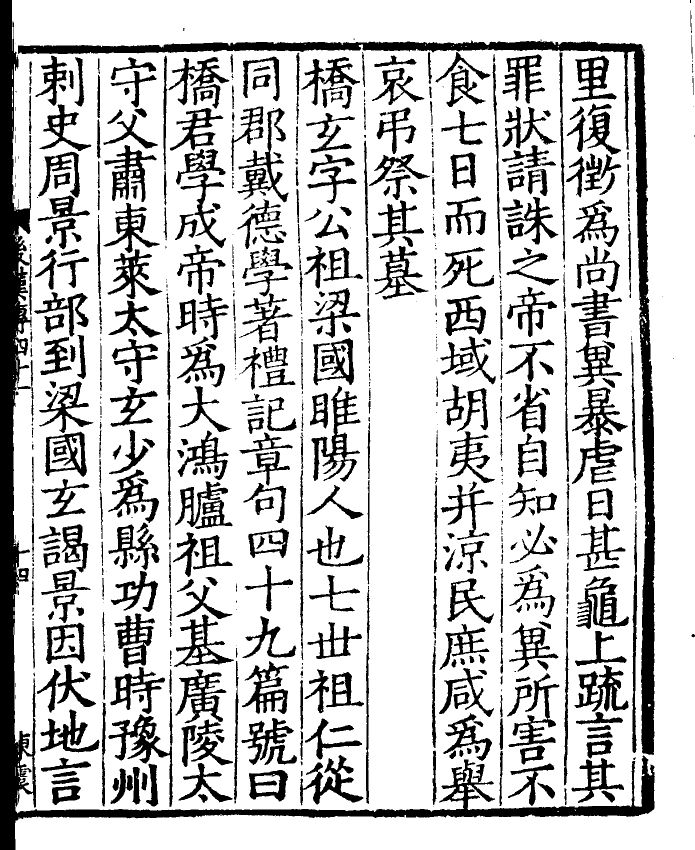 里復徵爲尚書兾暴虐日甚龜上䟽言其
罪狀請誅之帝不省自知必為兾所害不
食七日而死西域胡夷并涼民庶咸爲舉
哀弔祭其墓
橋玄字公祖梁國睢陽人也七世祖仁從
同郡戴德學著禮記章句四十九篇號曰
橋君學成帝時爲大鴻臚祖父基廣陵太
守父肅東萊太守玄少爲縣功曹時豫州
刺史周景行部到梁國玄謁景因伏地言
後漢傳四十一
十四